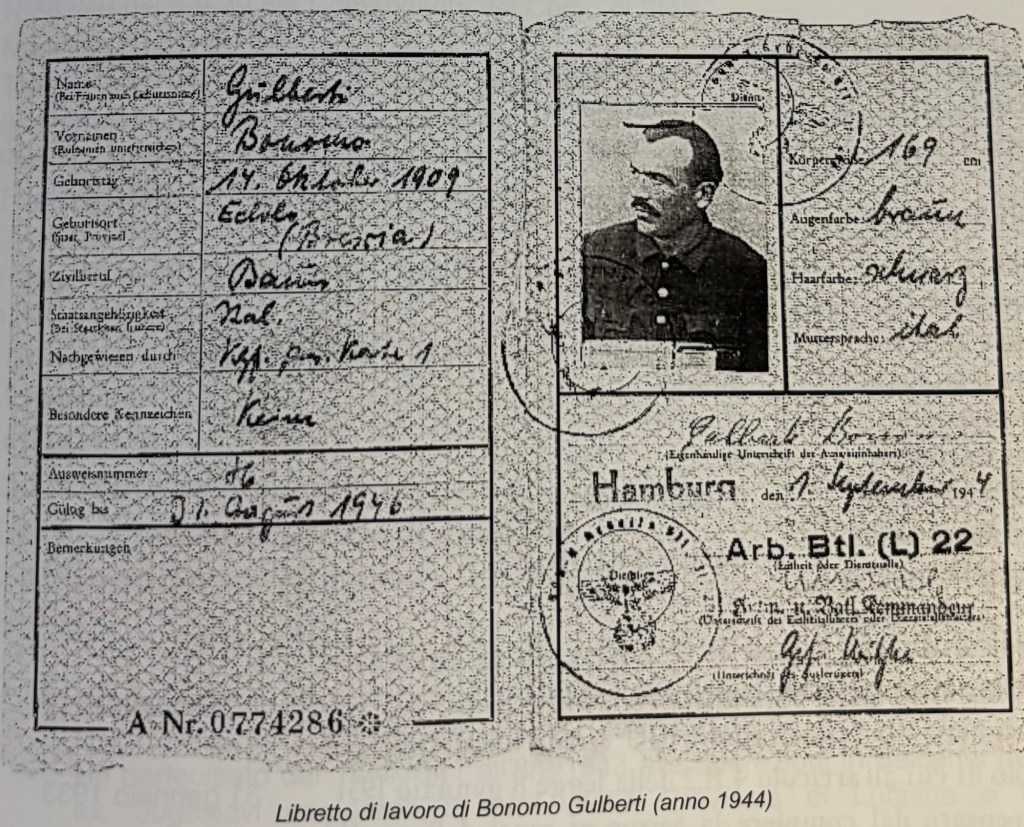 Name Gulberti
(Bei Frauen auch Geburtsname)
Vornamen Bonomo
(Rufnamen unterstreichen)
Geburtstag 14. Oktober 1909
Geburtsort
(Staat, Provinz) (Brescia)
Zivilberuf Bauer
Staatsangehörigkeit Ital.
Nachgewiesen durch Karte 1
Besondere Kennzeichen Keine
Ausweisnummer
Gültig bis 31. August 1946
Bemerkungen
A Nr. 0774286
Dienst
Körpergröße: 169 cm
Augenfarbe: braun
Haarfarbe: schwarz
Muttersprache: ital
Gulberti Bonomo
(Eigenhändige Unterschrift des Ausweisinhabers)
Hamburg, den 1. September 1944
Arb. Btl. (L) 22
(Einheit oder Dienststelle)
Dienst
(Unterschrift des Einheitsführers oder Dienststellenleiters)
(Unterschrift des Ausfertigers)
Libretto di lavoro di Bonomo Gulberti (anno 1944)